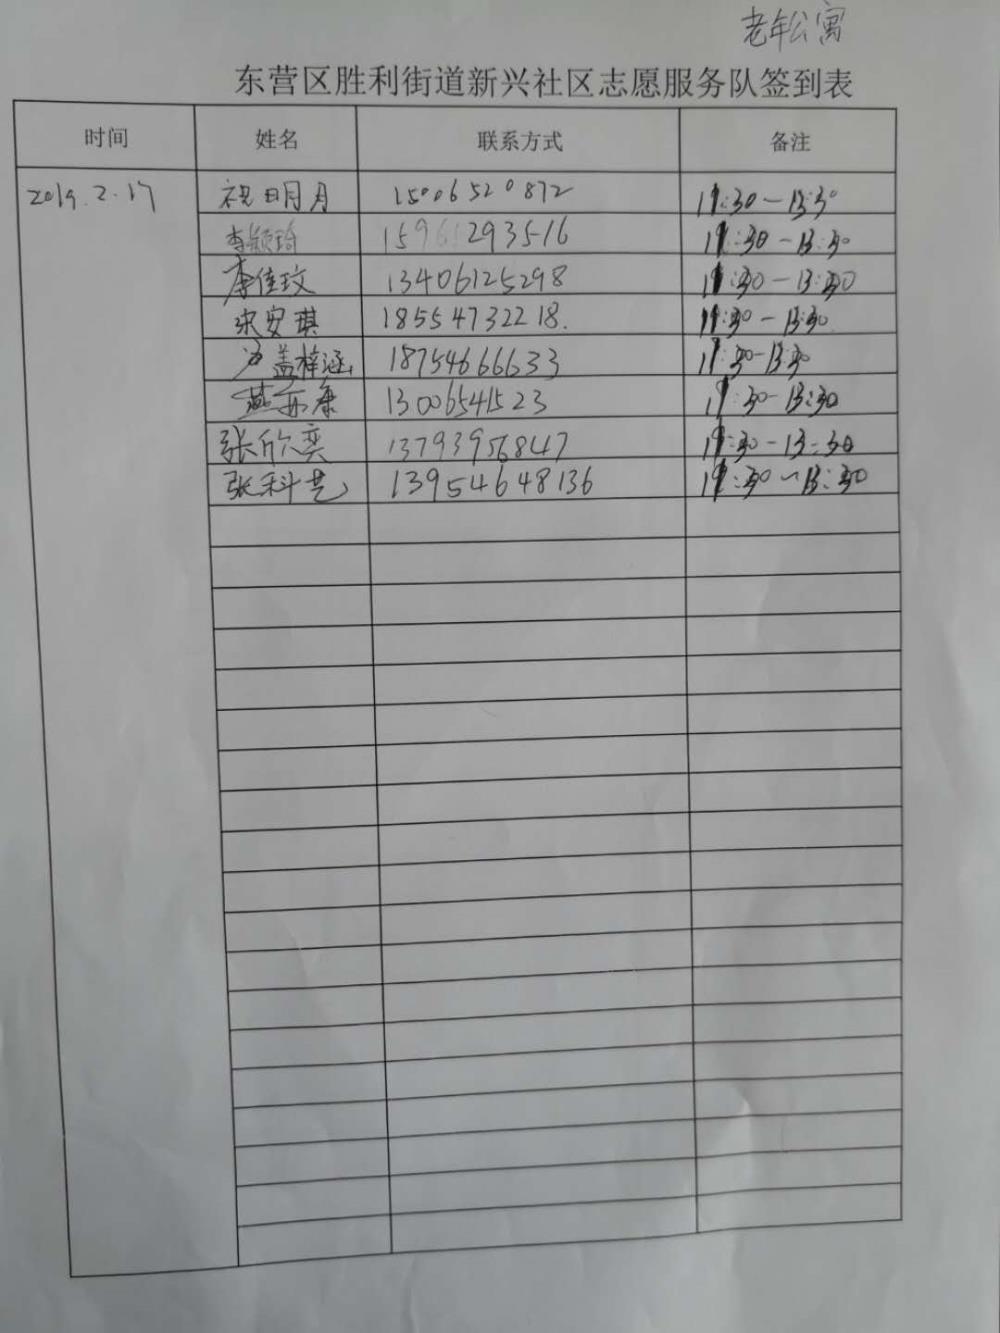 老年公寓
东营区胜利街道新兴社区志愿服务队签到表
时间 姓名 联系方式 备注
2019.2.17 祝明月 15006520872 11:30-13:30
李颖琦 15961293516 11:30-13:30
李佳玟 13406125298 11:30-13:30
宋安琪 18554732218. 11:30-13:30
盖梓涵 18754666633 11:30-13:30
燕康 13006541523 11:30-13:30
张欣奕 13793956847 11:30-13:30
张科艺 13954648136 11:30-13:30